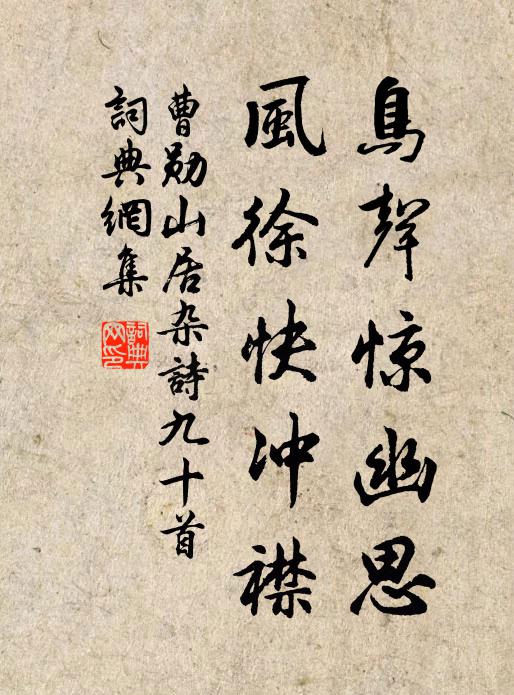 鳥聲惊幽思
風徐快冲襟
曹勛山居杂詩九十首
詞典網集
詞典
网印